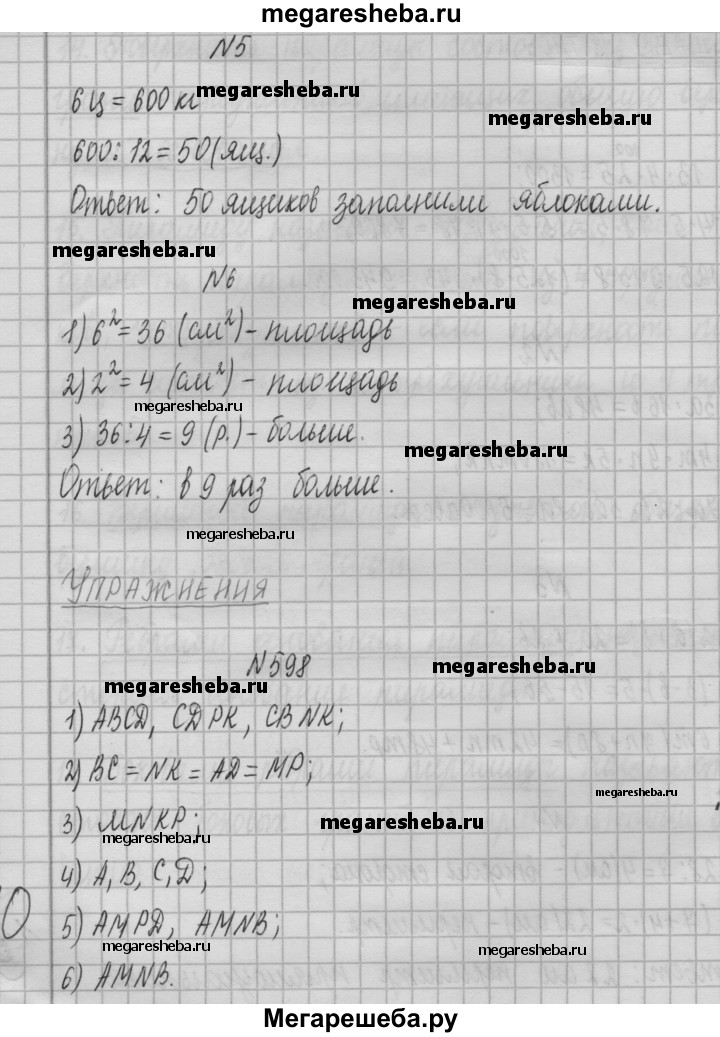 megaresheba.ru
N5
6 ц = 600 кг megaresheba.ru
megaresheba.ru
600 : 12 = 50 (ящ.)
Ответ: 50 ящиков заполнили яблоками.
megaresheba.ru
N6
megaresheba.ru
1) 6² = 36 (см²) - площадь
2) 2² = 4 (см²) - площадь
megaresheba.ru
3) 36 : 4 = 9 (р.) - больше.
megaresheba.ru
Ответ: в 9 раз больше.
megaresheba.ru
Упражнения
N598
megaresheba.ru
megaresheba.ru
1) ABCD, CDPK, CBNK;
2) BC = NK = AD = MP;
megaresheba.ru
3) MNKP;
megaresheba.ru
megaresheba.ru
4) A, B, C, D;
5) AMPD, AMNB;
megaresheba.ru
megaresheba.ru
6) AMNB.
Мегарешеба.ру